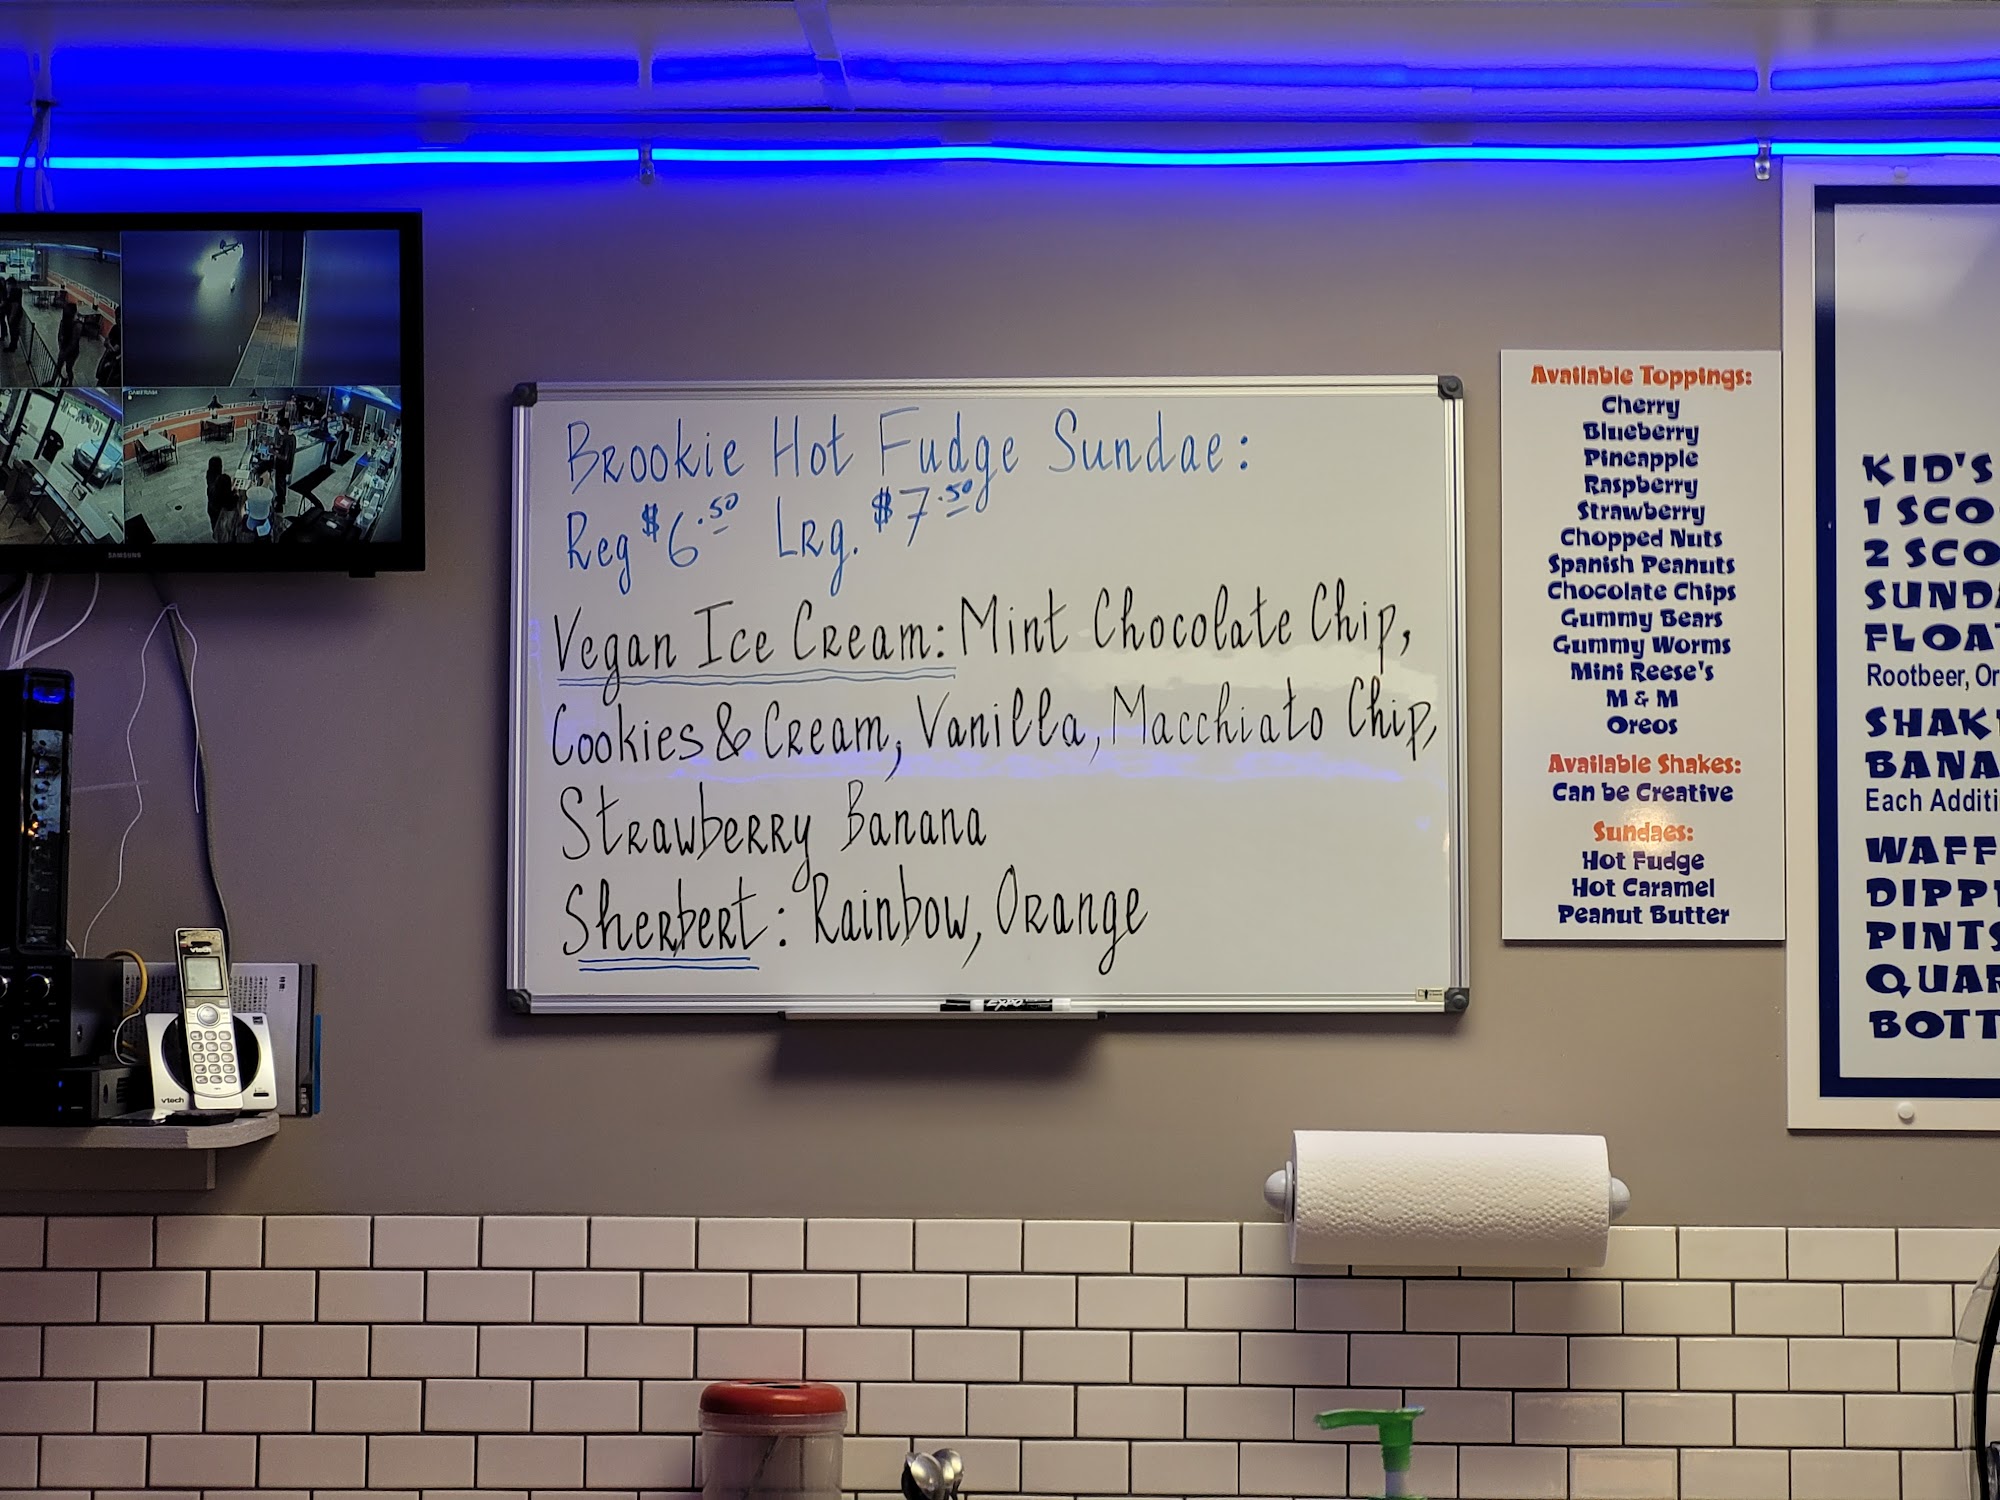 SAMSUNG
vtech
vtech
Brookie Hot Fudge Sundae:
Reg $6.50 Lrg. $7.50
Vegan Ice Cream: Mint Chocolate Chip,
Cookies & Cream, Vanilla, Macchiato Chip,
Strawberry Banana
Sherbert: Rainbow, Orange
EXPO
Available Toppings:
Cherry
Blueberry
Pineapple
Raspberry
Strawberry
Chopped Nuts
Spanish Peanuts
Chocolate Chips
Gummy Bears
Gummy Worms
Mini Reese's
M & M
Oreos
Available Shakes:
Can be Creative
Sundaes:
Hot Fudge
Hot Caramel
Peanut Butter
KID'S
1 SCO
2 SCO
SUNDA
FLOAT
Rootbeer, Or
SHAK
BANA
Each Additi
WAFF
DIPP
PINTS
QUAR
BOTT